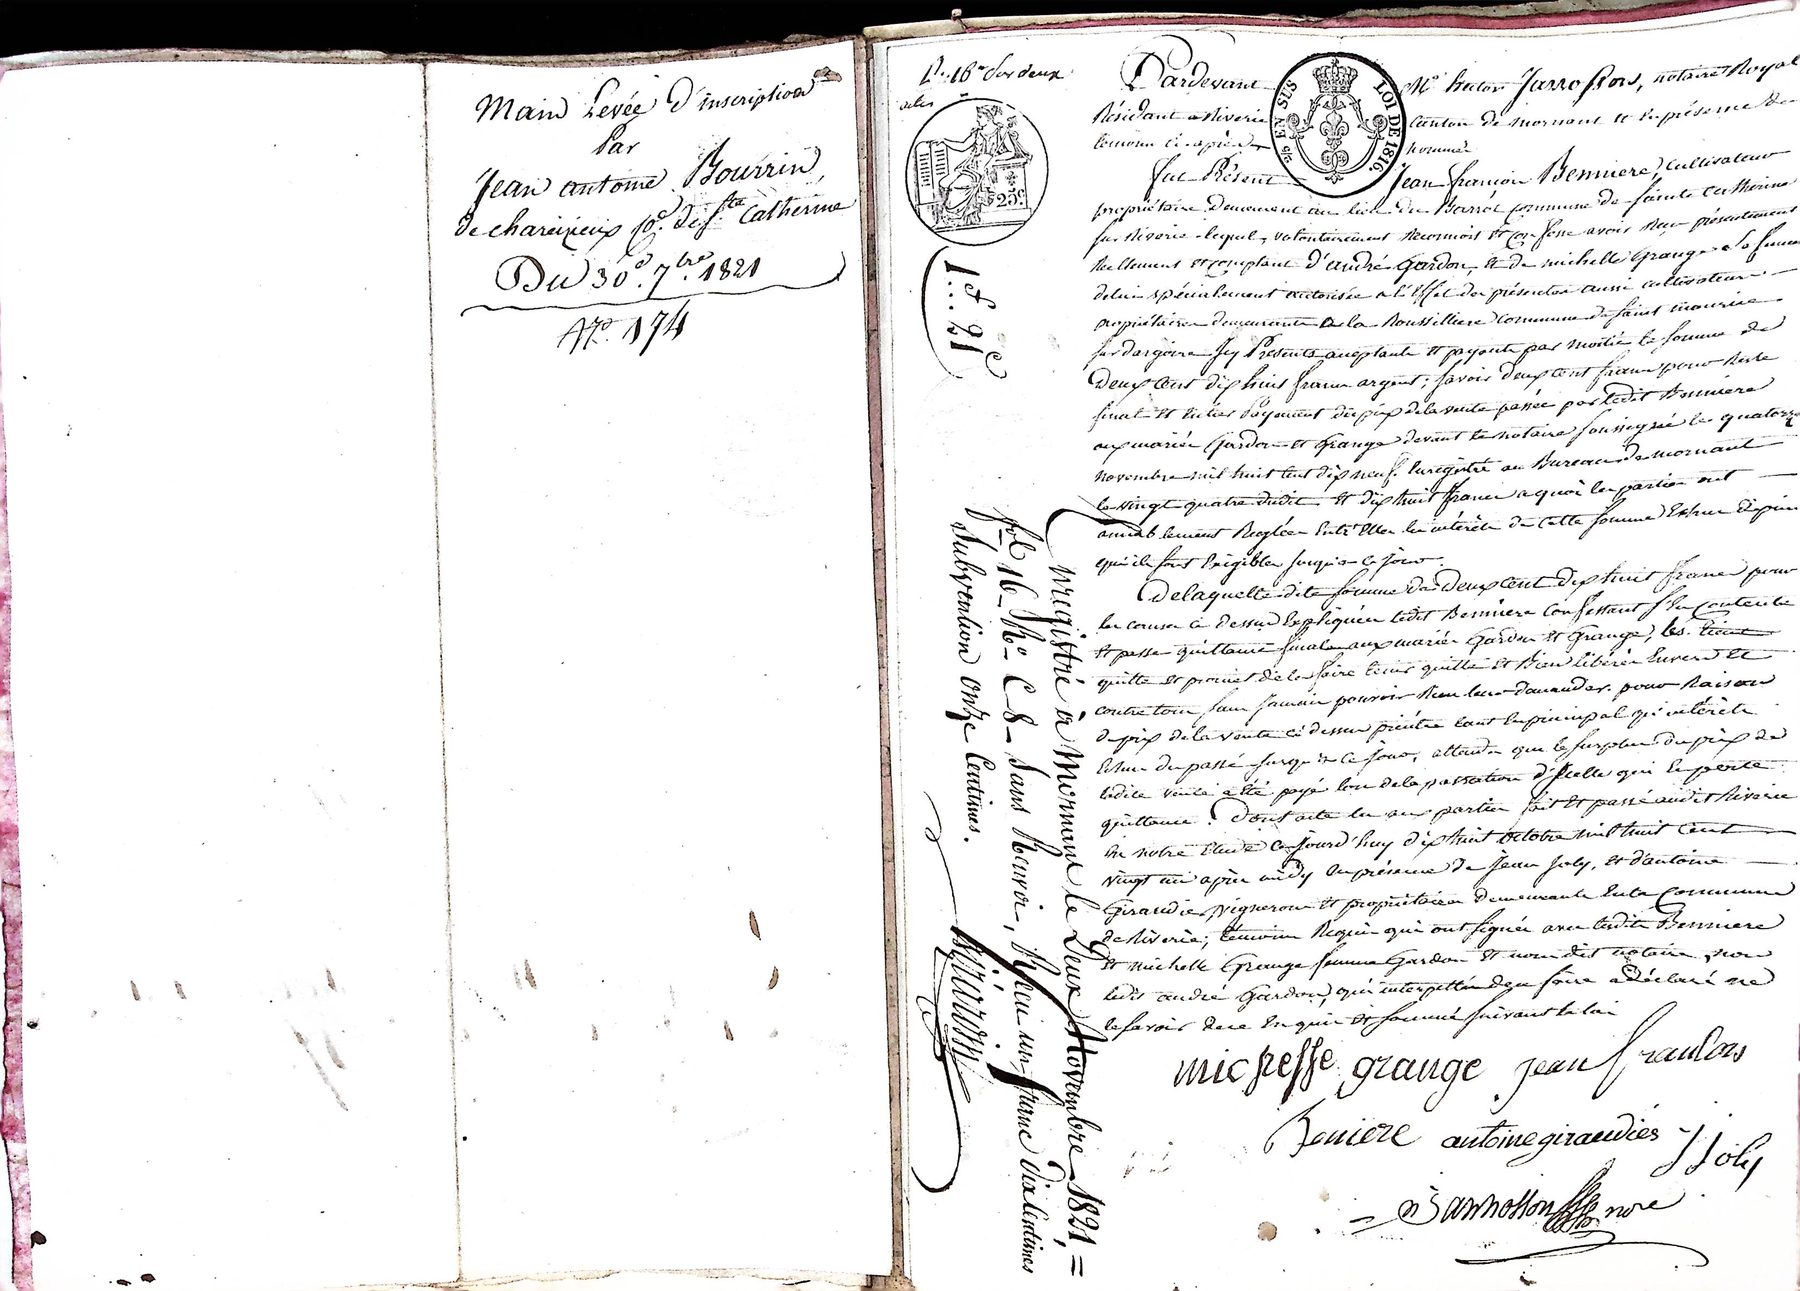 Main Levée d'inscription
Par
Jean antoine Bourrin,
de chareizieux Coe. de Ste Catherine
Du 30e. 7bre. 1821
No. 174
Du 16 Sur deux
EN SUS
LOI DE 1816.
25c
1f 21c
Pardevant Me hector Jarrosson, notaire Royal
Résidant a Riverie canton de mornant et En présence des
témoins ci après nommés
fut Présent Jean françois Benniere, Cultivateur
propriétaire Demeurant au lieu du Barrot commune de sainte Catherine
sur Riverie lequel, volontairement Reconnois et Confesse avoir Reçu présentement
Reellement et comptant d'andré Gardon, et de michelle Grange sa femme
de lui spécialement autorisée a l'Effet des présentes aussi cultivateurs
propriétaires demeurants a la Roussilliere commune de saint maurice
sur dargoire Icy Présents acceptants et payants par moitié la somme de
Deux Cent dix huit francs argent; savoir deux cent francs pour Reste
final et Entier Payement du prix de la vente passée par ledit Benniere
aux mariés Gardon et Grange devant le notaire soussigné le quatorze
novembre mil huit Cent dix neuf. Enregistré au Bureau de mornant
le vingt quatre dudit et dix huit francs a quoi les parties ont
amiablement Reglées Entr'Elles les intérêts de Cette somme Echus depuis
qu'ils sont Exigibles jusqu'a ce jour.
De laquelle dite somme de Deux Cent dix huit francs pour
les causes ci dessus Expliquées ledit Benniere Confessant s'En Contente
et passe quittance finale aux mariés Gardon et Grange, les tient
quitte et promet de les faire tenir quitte et Bien libérés Envers et
contre tous sans jamais pouvoir Rien leur demander pour Raison
du prix de la vente ci dessus précitée tant En principal qu'intérêts
Echus du passé jusqu'a ce jour, attendu que le surplus du prix de
ladite vente a Eté payé lors de la passation d'Icelle qui En porte
quittance. Dont acte lu aux parties fait et passé audit Riverie
En notre Etude Ce jourd'huy dix huit octobre mil huit Cent
vingt un après midy En présence de Jean Joly, et d'antoine
Giraudiés, vignerons et propriétaires demeurants En la Commune
de Riverie; témoins Requis qui ont signés avec ledit Bennière
et michelle Grange femme Gardon et nous dit notaire, non
ledit andré Gardon, qui interpellé de ce faire a déclaré ne
le savoir de ce Enquis et sommé suivant la loi
michelle grange jean francois
Beniere antoine giraudiés J Joly
H Jarrosson nore
Enregistré à Mornant le Deux Novembre 1821,
fol 16 Ro C 8 Sans Renvoi, Reçu un franc dix Centimes
Subvention onze Centimes.